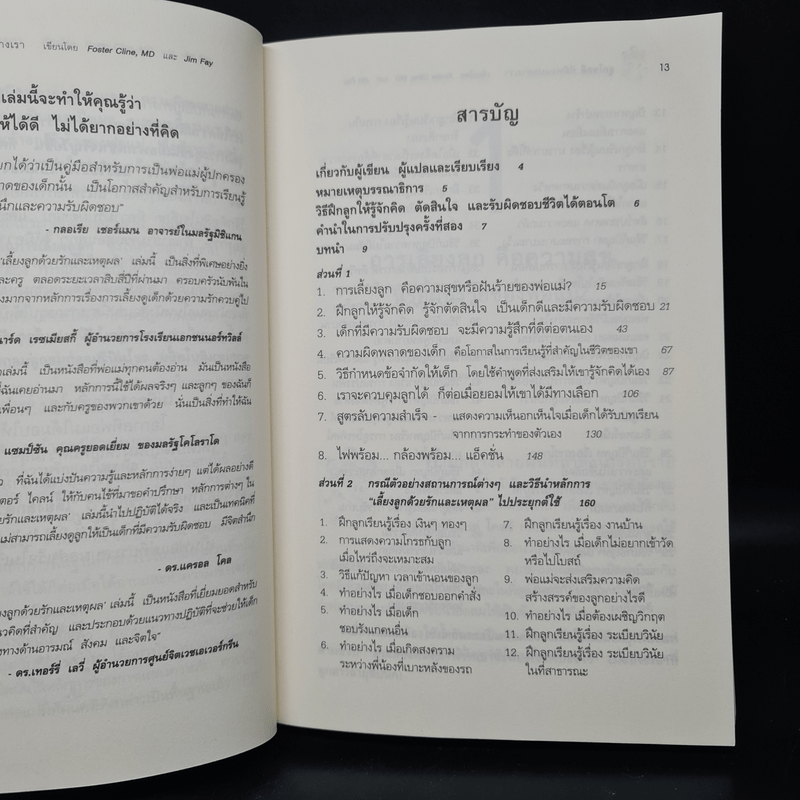 างเรา เขียนโดย Foster Cline, MD และ Jim Fay
เล่มนี้จะทำให้คุณรู้ว่า
ห้ได้ดี ไม่ได้ยากอย่างที่คิด
ยกได้ว่าเป็นคู่มือสำหรับการเป็นพ่อแม่ผู้ปกครอง
าดของเด็กนั้น เป็นโอกาสสำคัญสำหรับการเรียนรู้
นึกและความรับผิดชอบ"
- กลอเรีย เชอร์แมน อาจารย์ในมลรัฐมิชิแกน
'เลี้ยงลูกด้วยรักและเหตุผล' เล่มนี้ เป็นสิ่งที่พิเศษอย่างยิ่ง
และครู ตลอดระยะเวลาสิบสี่ปีที่ผ่านมา ครอบครัวนับพันใน
งมากจากหลักการเรื่องการเลี้ยงดูเด็กด้วยความรักควบคู่ไป
นาร์ด เรซเมียสกี้ ผู้อำนวยการโรงเรียนเอกชนนอร์ทวิลล์
ล่มนี้ เป็นหนังสือที่พ่อแม่ทุกคนต้องอ่าน มันเป็นหนังสือ
ที่ฉันเคยอ่านมา หลักการนี้ใช้ได้ผลจริงๆ และลูกๆ ของฉันก็
เพื่อนๆ และกับครูของพวกเขาด้วย นั่นเป็นสิ่งที่ทำให้ฉัน
แซมป์ซัน คุณครูยอดเยี่ยม ของมลรัฐโคโลราโด
ว ที่ฉันได้แบ่งปันความรู้และหลักการง่ายๆ แต่ได้ผลอย่างดี
ตอร์ ไคลน์ ให้กับคนไข้ที่มาขอคำปรึกษา หลักการต่างๆ ใน
ยรักและเหตุผล' เล่มนี้นำไปปฏิบัติได้จริง และเป็นเทคนิคที่
แม่สามารถเลี้ยงดูลูกให้เป็นเด็กที่มีความรับผิดชอบ มีจิตสำนึก
- ดร.แครอล โคล
ยงลูกด้วยรักและเหตุผล' เล่มนี้ เป็นหนังสือที่เยี่ยมยอดสำหรับ
นวคิดที่สำคัญ และประกอบด้วยแนวทางปฏิบัติที่จะช่วยให้เด็ก
งทางด้านอารมณ์ สังคม และจิตใจ"
- ดร.เทอร์รี่ เลวี่ ผู้อำนวยการศูนย์จิตเวชเอเวอร์กรีน
13
สารบัญ
เกี่ยวกับผู้เขียน ผู้แปลและเรียบเรียง 4
หมายเหตุบรรณาธิการ 5
วิธีฝึกลูกให้รู้จักคิด ตัดสินใจ และรับผิดชอบชีวิตได้ตอนโต 6
คำนำในการปรับปรุงครั้งที่สอง 7
บทนำ 9
ส่วนที่ 1
1. การเลี้ยงลูก คือความสุขหรือฝันร้ายของพ่อแม่? 15
2. ฝึกลูกให้รู้จักคิด รู้จักตัดสินใจ เป็นเด็กดีและมีความรับผิดชอบ 21
3. เด็กที่มีความรับผิดชอบ จะมีความรู้สึกที่ดีต่อตนเอง 43
4. ความผิดพลาดของเด็ก คือโอกาสในการเรียนรู้ที่สำคัญในชีวิตของเขา 67
5. วิธีกำหนดข้อจำกัดให้เด็ก โดยใช้คำพูดที่ส่งเสริมให้เขารู้จักคิดได้เอง 87
6. เราจะควบคุมลูกได้ ก็ต่อเมื่อยอมให้เขาได้มีทางเลือก 106
7. สูตรลับความสำเร็จ - แสดงความเห็นอกเห็นใจเมื่อเด็กได้รับบทเรียน
จากการกระทำของตัวเอง 130
8. ไฟพร้อม... กล้องพร้อม... แอ็คชั่น 148
ส่วนที่ 2 กรณีตัวอย่างสถานการณ์ต่างๆ และวิธีนำหลักการ
"เลี้ยงลูกด้วยรักและเหตุผล" ไปประยุกต์ใช้ 160
1. ฝึกลูกเรียนรู้เรื่อง เงินๆ ทองๆ
2. การแสดงความโกรธกับลูก
เมื่อไหร่ถึงจะเหมาะสม
3. วิธีแก้ปัญหา เวลาเข้านอนของลูก
4. ทำอย่างไร เมื่อเด็กชอบออกคำสั่ง
5. ทำอย่างไร เมื่อเด็ก
ชอบรังแกคนอื่น
6. ทำอย่างไร เมื่อเกิดสงคราม
ระหว่างพี่น้องที่เบาะหลังของรถ
7. ฝึกลูกเรียนรู้เรื่อง งานบ้าน
8. ทำอย่างไร เมื่อเด็กไม่อยากเข้าวัด
หรือไปโบสถ์
9. พ่อแม่จะส่งเสริมความคิด
สร้างสรรค์ของลูกอย่างไรดี
10. ทำอย่างไร เมื่อต้องเผชิญวิกฤต
11. ฝึกลูกเรียนรู้เรื่อง ระเบียบวินัย
12. ฝึกลูกเรียนรู้เรื่อง ระเบียบวินัย
ในที่สาธารณะ